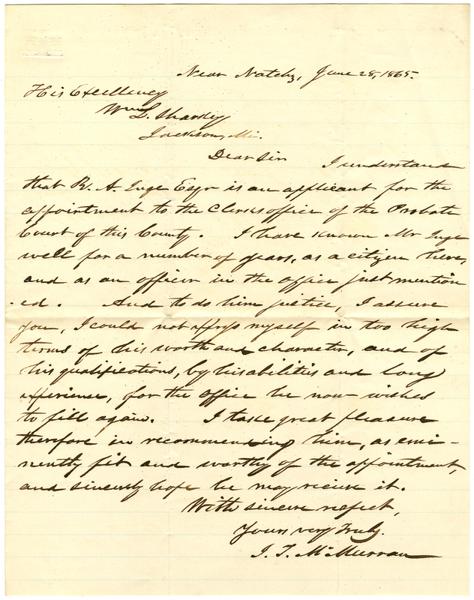 Near Natchz, June 28, 1865.
His Excellency
Wm L. Sharkey
Jackson, Mi.
Dear Sir I understand
that R. A. Inge Esqr is an applicant for the
appointment to the Clerks office of the Probate
Court of this County. I have known Mr Inge
well for a number of years, as a citizen here,
and as an officer in the office just mention
-ed. And to do him justice, I assure
you, I could not express myself in too high
terms of his worth and character, and of
his qualifications, by his abilities and long
experience, for the office he now wishes
to fill again. I take great pleasure
therefore in recommending him, as emi-
nently fit and worthy of the appointment,
and sincerely hope he may recieve it.
With sincere respect,
Yours very truly,
J. T. McMurran